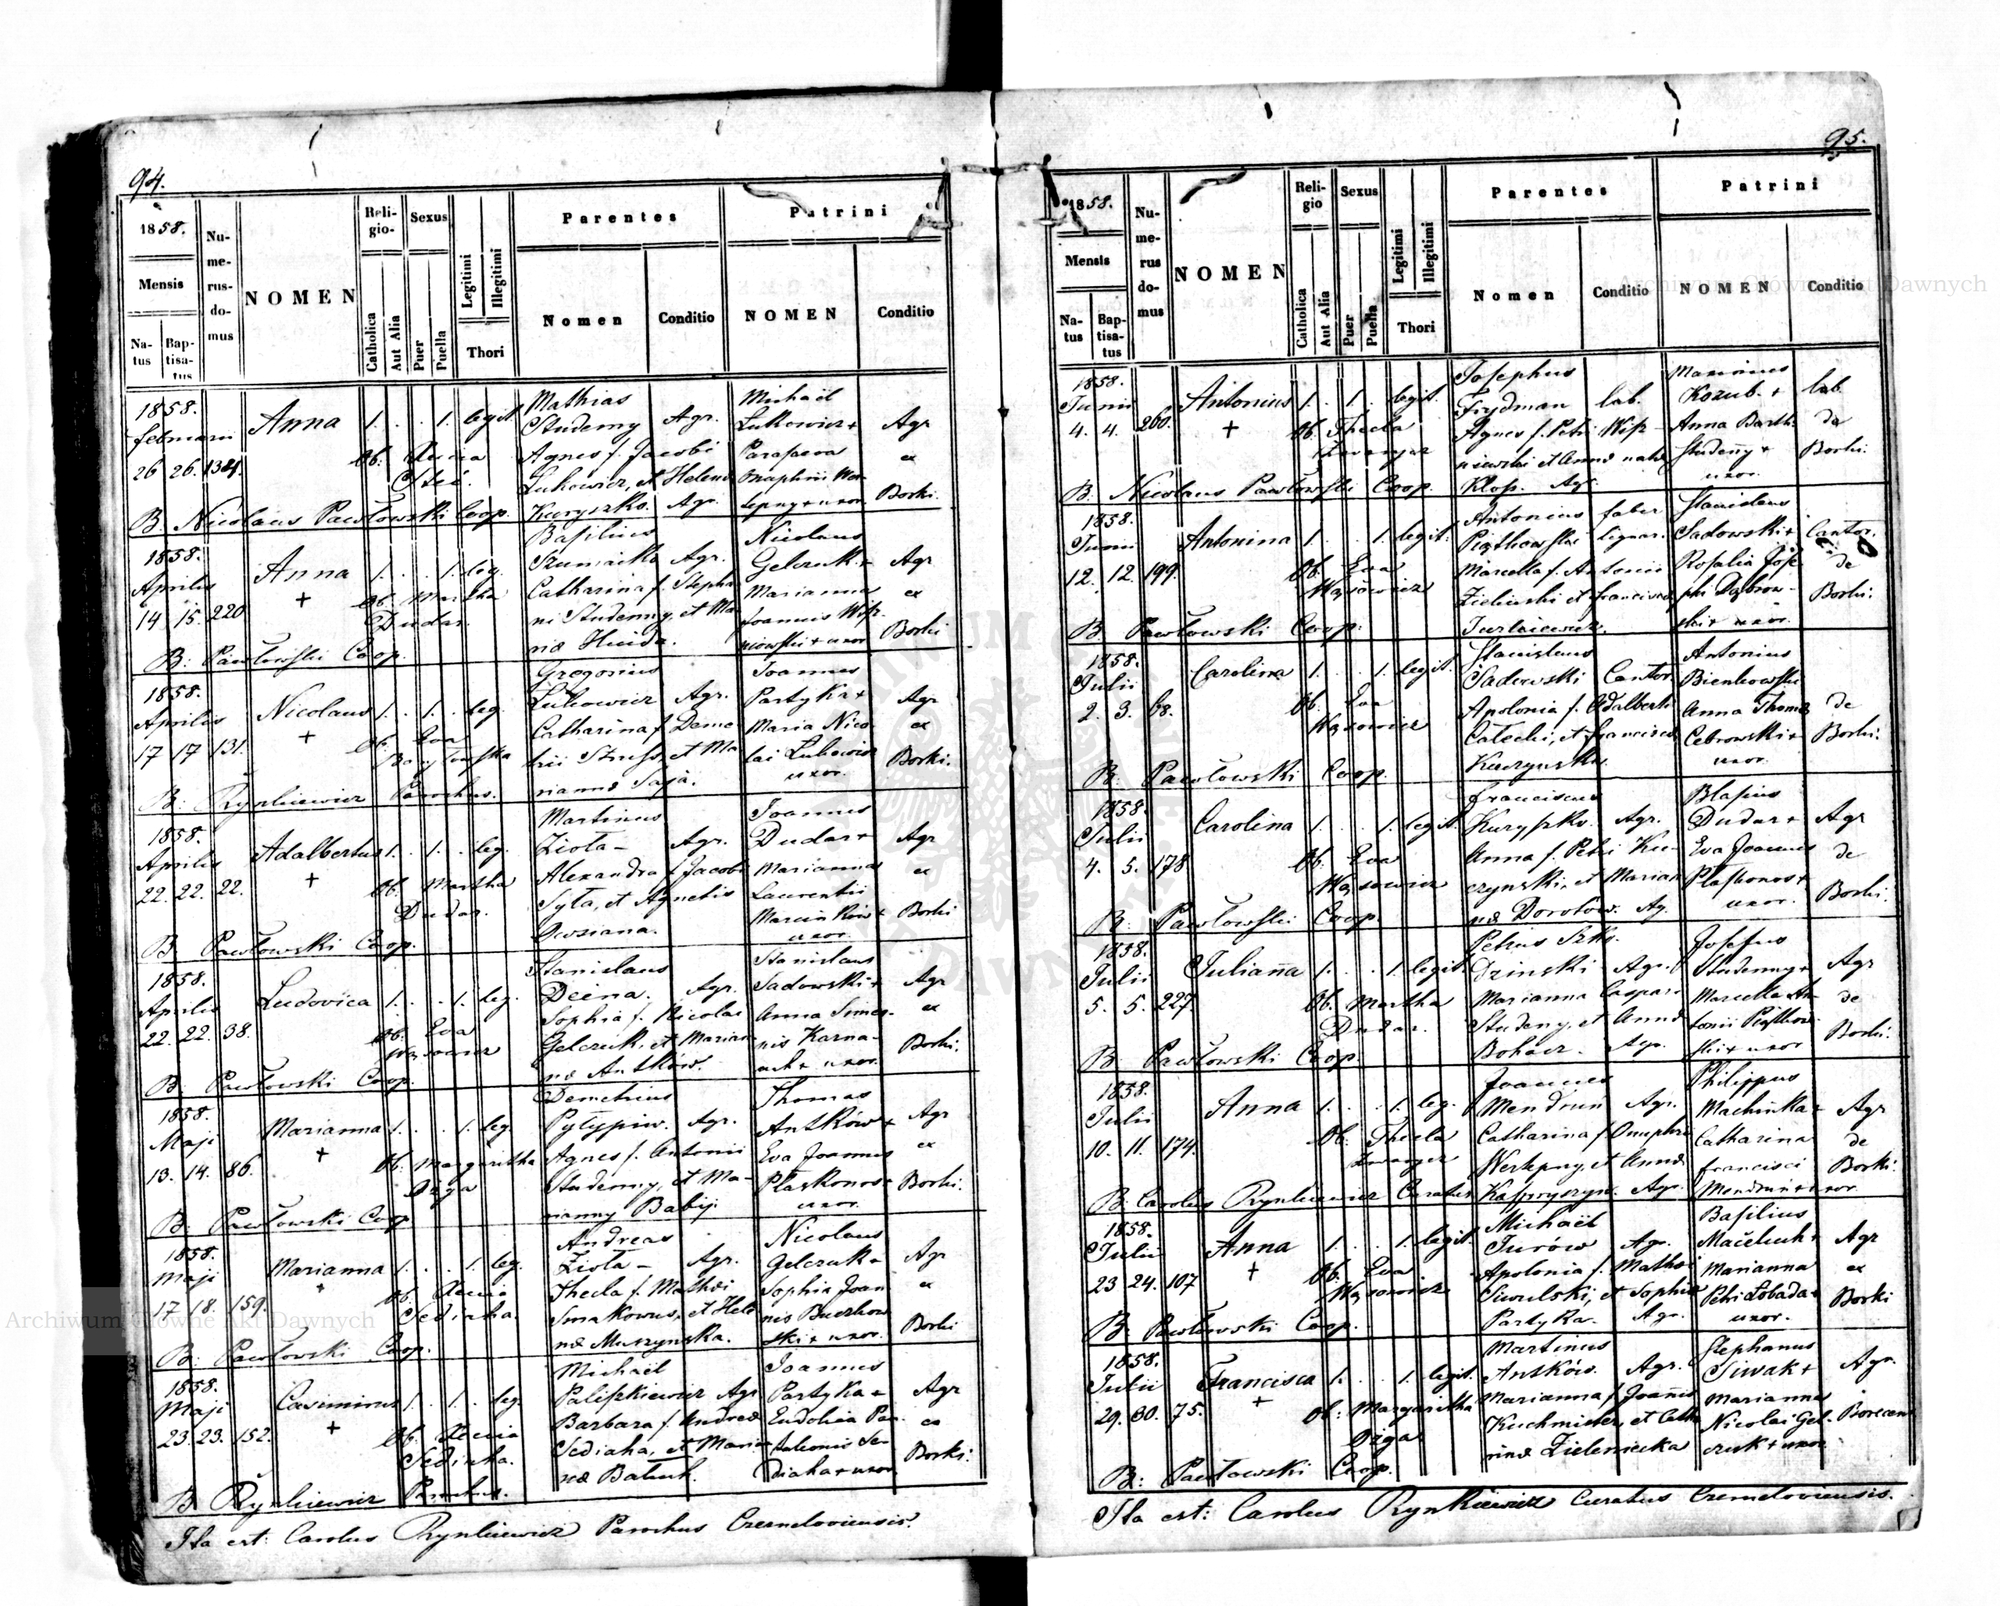 94.
1858.
Mensis
Na-
tus
Bap-
tisa-
tus
Nu-
me-
rus-
do-
mus
NOMEN
Reli-
gio-
Catholica
Aut Alia
Sexus
Puer
Puella
Legitimi
Illegitimi
Thori
Parentes
Nomen
Conditio
Patrini
NOMEN
Conditio
1858.
februarii
26 26. 134.
Anna 1. . . 1. legit.
Ob.
Mathias
Studenny Agr.
Agnes f. Jacobi
Lukowicz, et Helena
Kuryszko. Agr.
Michaël
Lukowicz +
Parasceva
+ uxor
Agr
ex
Borki.
B. Nicolaus Pawłowski Coop.
1858.
Aprilis
14. 15. 220
Anna 1. . . 1. leg.
+
Ob. Martha
Dudar.
Basilius
Agr.
Catharina f. Stepha
ni Studenny, et Ma
riæ
Nicolaus
Gelczuk +
Marianna
Joannis Wiś
niowski + uxor
Agr
ex
Borki
B: Pawłowski Coop.
1858.
Aprilis
17 17 131.
Nicolaus 1. . 1. . leg.
+
Ob. Eva
Gregorius
Lukowicz Agr.
Catharina f. Deme
trii et Ma
riannæ
Joannes
Partyka +
Maria Nico
lai Lukowicz
uxor.
Agr
ex
Borki.
B: Rynkiewicz Parochus.
1858.
Aprilis
22. 22. 22.
Adalbertus 1. . 1. . leg.
+
Ob. Martha
Dudar.
Martinus
Ziota Agr.
Alexandra f Jacobi
Syta, et Agnetis
Owsiana.
Joannes
Dudar +
Marianna
Laurentii
Marcinków +
uxor.
Agr
ex
Borki
B. Pawłowski Coop.
1858.
Aprilis
22. 22. 38.
Ludovica 1. . . 1. leg.
Ob. Eva
Wąsowicz
Stanislaus
Deina. Agr.
Sophia f. Nicolai
Gelczuk, et Marian
næ Antków.
Stanislaus
Sadowski +
Anna Simeo-
nis Karna-
uch + uxor.
Agr
ex
Borki.
B: Pawłowski Coop.
1858.
Maji
13. 14. 86.
Marianna 1. . . 1. leg
+
Ob: Margaritha
Dzga
Demetrius
Pylypiw. Agr.
Agnes f. Antonii
Studenny, et Ma-
rianny Babij.
Thomas
Antków +
Eva Joannes
Płaskonos +
uxor.
Agr
ex
Borki.
B: Pawłowski Coop
1858.
Maji
17 18. 159.
Marianna 1. . . 1. leg.
+
Ob. Xenia
Sediaha.
Andreas
Ziota Agr.
Thecla f. Mathæi
et Hele
næ Muszynska.
Nicolaus
Gelczuk +
Sophia Joan
nis
+ uxor.
Agr
ex
Borki
B. Pawłowski Coop.
1858.
Maji
23. 23. 152.
Casimirus 1. . 1. . leg.
+
Ob. Xenia
Sediaha.
Michaël
Paliszkiewicz Agr
Barbara f. Andreæ
Sediaha, et Maria
næ Batiuk.
Joannes
Partyka +
Eudokia Pan
taleonis Se
diaha + uxor
Agr
ex
Borki.
B Rynkiewicz Parochus.
Ita est: Carolus Rynkiewicz Parochus Czernelooviensis.
95.
1858.
Mensis
Na-
tus
Bap-
tisa-
tus
Nu-
me-
rus
do-
mus
NOMEN
Reli-
gio
Catholica
Aut Alia
Sexus
Puer
Puella
Legitimi
Illegitimi
Thori
Parentes
Nomen
Conditio
Patrini
NOMEN
Conditio
1858.
Junii
4. 4. 260.
Antonius 1. . 1. . legit.
+
Ob. Thecla
Josephus
Frydman lab.
Agnes f. Petri Wiś-
niewski et Annæ natæ
Kłos. Agr.
Marianus
Kozub. +
Anna Barth.
Studenny +
uxor.
lab.
de
Borki.
B. Nicolaus Pawłowski Coop.
1858.
Junii
12. 12. 199.
Antonina 1. . . 1. legit.
Ob. Eva
Wąsowicz
Antonius faber
Piątkowski lignar.
Marcella f. Antonii
Zielinski et Francisca
Stanislaus
Sadowski +
Rosalia Jose
phi Dąbrow-
ski + uxor.
Cantor.
de
Borki.
B. Pawłowski Coop.
1858.
Julii
2. 3. 68.
Carolina 1. . . 1. legit.
Ob. Eva
Wąsowicz
Stanislaus
Sadowski Cantor.
Apolonia f. Adalberti
et Francisca
Kuczynska.
Antonius
Bienkowski
Anna Thomæ
Cebrowski +
uxor.
de
Borki.
B: Pawłowski Coop.
1858.
Julii
4. 5. 178
Carolina 1. . . 1. legit.
Ob. Eva
Wąsowicz
Franciscus
Kuryszko. Agr.
Anna f. Petri Ku-
czynski, et Marian
næ Dorotów. Ag.
Blasius
Dudar +
Eva Joannes
Płaskonos +
uxor.
Agr
de
Borki.
B: Pawłowski Coop.
1858.
Julii
5. 5. 227.
Julianna 1. . . 1. legit.
Ob. Martha
Dudar.
Petrus Szko.
Dzinski Agr.
Marianna Caspari
Studeny, et Annæ
Bohacz. Agr.
Josefus
Studenny +
Marcella An-
tonii Piątkow
ski + uxor
Agr
de
Borki.
B: Pawłowski Coop.
1858.
Julii
10. 11. 174.
Anna 1. . . 1. leg.
Ob. Thecla
Joannes
Mendrun Agr.
Catharina f Onuphrii
Werhepny, et Annæ
Kaspryszyn. Agr.
Philippus
Machinka +
Catharina
Francisci
Mendruń + uxor
Agr
de
Borki.
B: Carolus Rynkiewicz Curatus
1858.
Julii
23 24. 107
Anna 1. . . 1. legit.
+
Ob. Eva
Wąsowicz
Michaël
Turów Agr.
Apolonia f. Mathæi
Siwulski, et Sophiæ
Partyka. Agr.
Basilius
+
Marianna
Petri Łobada +
uxor.
Agr
ex
Borki
B: Pawłowski Coop.
1858.
Julii
29. 30. 75.
Francisca 1. . . 1. legit.
+
Ob: Margaritha
Dzga
Martinus
Antków. Agr.
Marianna f. Joannis
Kuchmister, et Catha
rinæ Zieleniecka
Stephanus
Siwak +
Marianna
Nicolai Gel-
czuk + uxor
Agr.
B: Pawłowski Coop.
Ita est: Carolus Rynkiewicz Curatus Czernelooviensis.
Archiwum Główne Akt Dawnych
Archiwum Główne Akt Dawnych